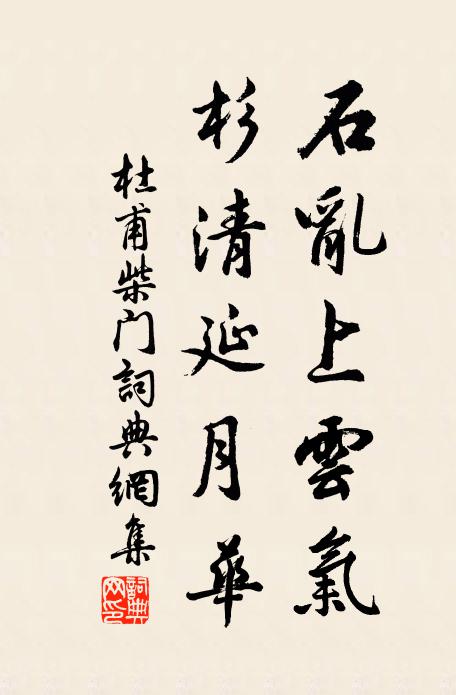 石亂上雲氣
杉清延月華
杜甫柴門詞典網集
詞典
网印